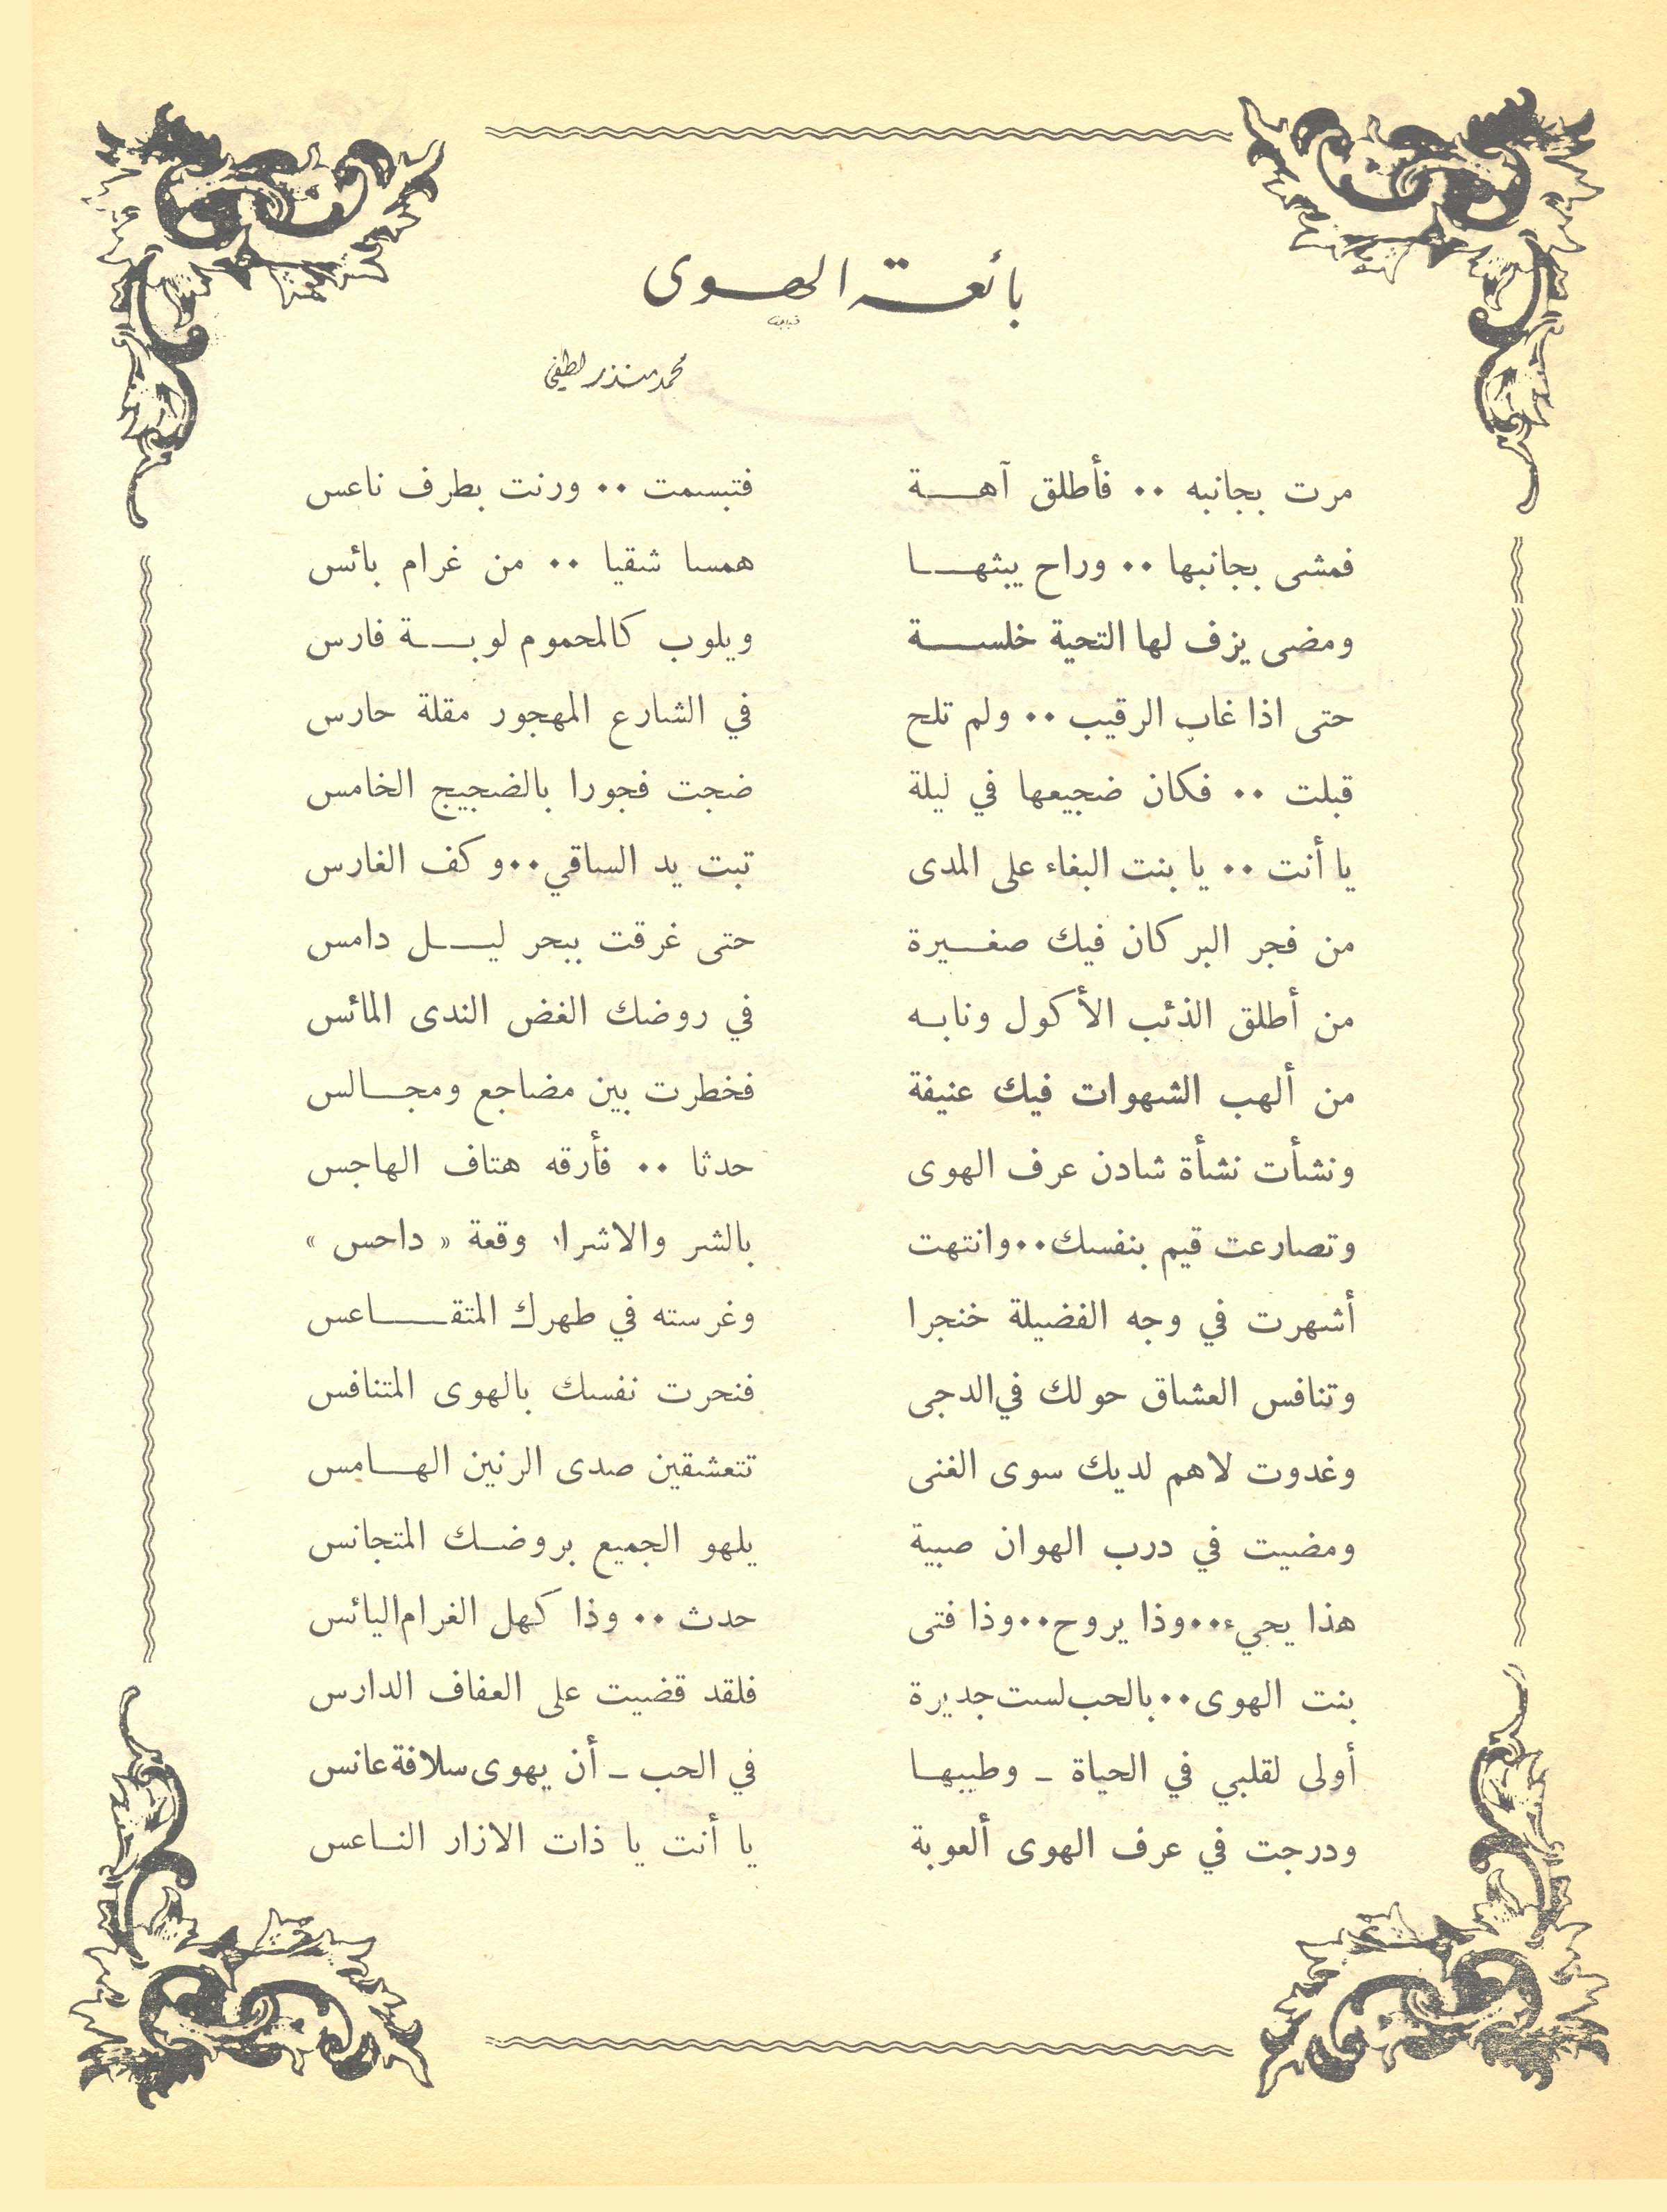 بائعة الهوى
محمد منذر لطفي
مرت بجانبه ٠٠ فأطلق آهـــة فتبسمت ٠٠ ورنت بطرف ناعس
فمشى بجانبها ٠٠ وراح يبثهـــا همسا شقيا ٠٠ من غرام بائس
ومضى يزف لها التحية خلســـة ويلوب كالمحموم لوبـــة فارس
حتى اذا غاب الرقيب ٠٠ ولم تلح في الشارع المهجور مقلة حارس
قبلت ٠٠ فكان ضجيعها في ليلة ضجت فجورا بالضجيج الخامس
يا أنت ٠٠ يا بنت البغاء على المدى تبت يد الساقي ٠٠ وكف الغارس
من فجر البركان فيك صغـــيرة حتى غرقت ببحر ليـــل دامس
من أطلق الذئب الأكول ونابـه في روضك الغض الندى المائس
من ألهب الشهوات فيك عنيفة فخطرت بين مضاجع ومجـــالس
ونشأت نشأة شادن عرف الهوى حدثا ٠٠ فأرقه هتاف الهاجس
وتصارعت قيم بنفسك ٠٠ وانتهت بالشر والاشرا، وقعة « داحس »
أشهرت في وجه الفضيلة خنجرا وغرسته في طهرك المتقـــاعس
وتنافس العشاق حولك في الدجى فنحرت نفسك بالهوى المتنافس
وغدوت لاهم لديك سوى الغنى تتعشقين صدى الرنين الهـــامس
ومضيت في درب الهوان صبية يلهو الجميع بروضـك المتجانس
هذا يجيء ٠٠ وذا يروح ٠٠ وذا فتى حدث ٠٠ وذا كهل الغرام اليائس
بنت الهوى ٠٠ بالحب لست جديرة فلقد قضيت على العفاف الدارس
أولى لقلبي في الحياة ـ وطيبهـا في الحب ـ أن يهوى سلافة عانس
ودرجت في عرف الهوى ألعوبة يا أنت يا ذات الازار النـاعس